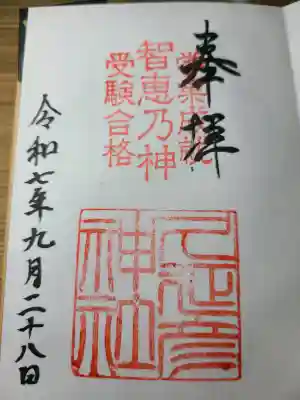 奉拝
学業成就
智恵乃神
受験合格
久延彦
神社
令和七年九月二十八日